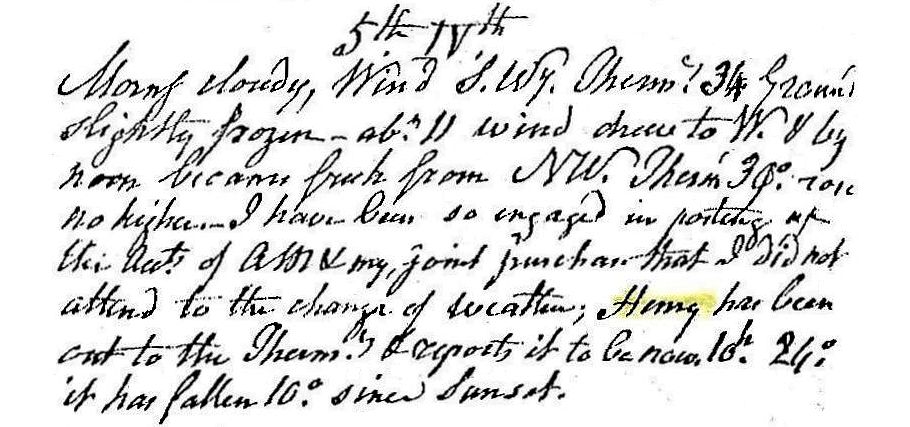 5th IVth
Morng cloudy, Wind S.Wy. Thermr. 34 Ground
slightly frozen – abt. 11 wind drew to W. & by
noon became fresh from NW. Therm 38°. rose
no higher – I have been so engaged in posting up
the Accts of AM & my joint purchase that I did not
attend to the change of weather; Henry has been
out to the Thermr. & reports it to be now 10h. 24°.
it has fallen 10°. since Sunset.